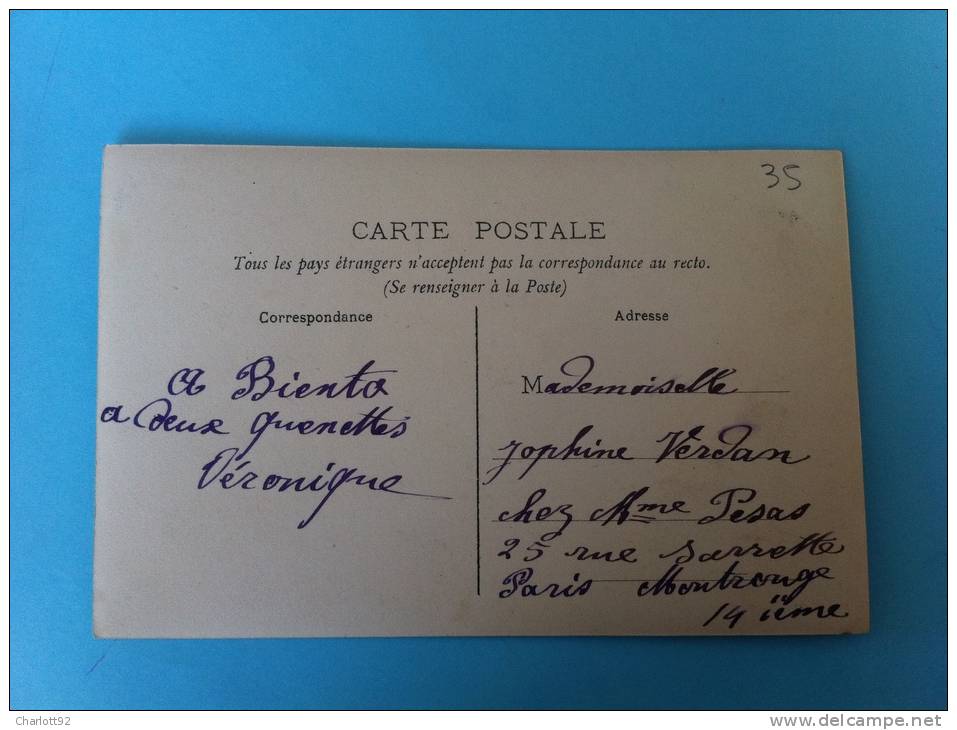 35
CARTE POSTALE
Tous les pays étrangers n'acceptent pas la correspondance au recto.
(Se renseigner à la Poste)
Correspondance
A Biento
a deux quenettes
Véronique
Adresse
Mademoiselle
Jophine Verdan
chez Mme Pesas
25 rue Sarrette
Paris Montrouge
14 ième
Charlott92
www.delcampe.net